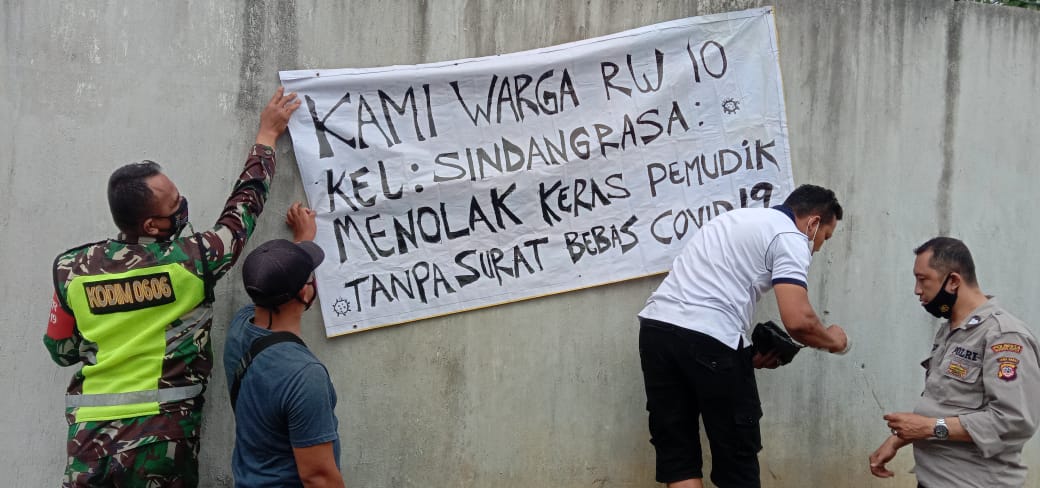 KAMI WARGA RW 10
KEL: SINDANGRASA:
MENOLAK KERAS PEMUDIK
TANPA SURAT BEBAS COVID19
KODIM 0606
POLRI